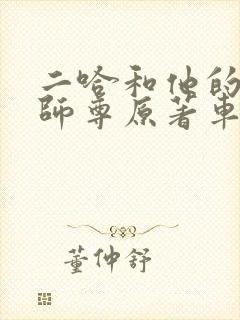 二哈和他的
師尊原著車
董仲舒